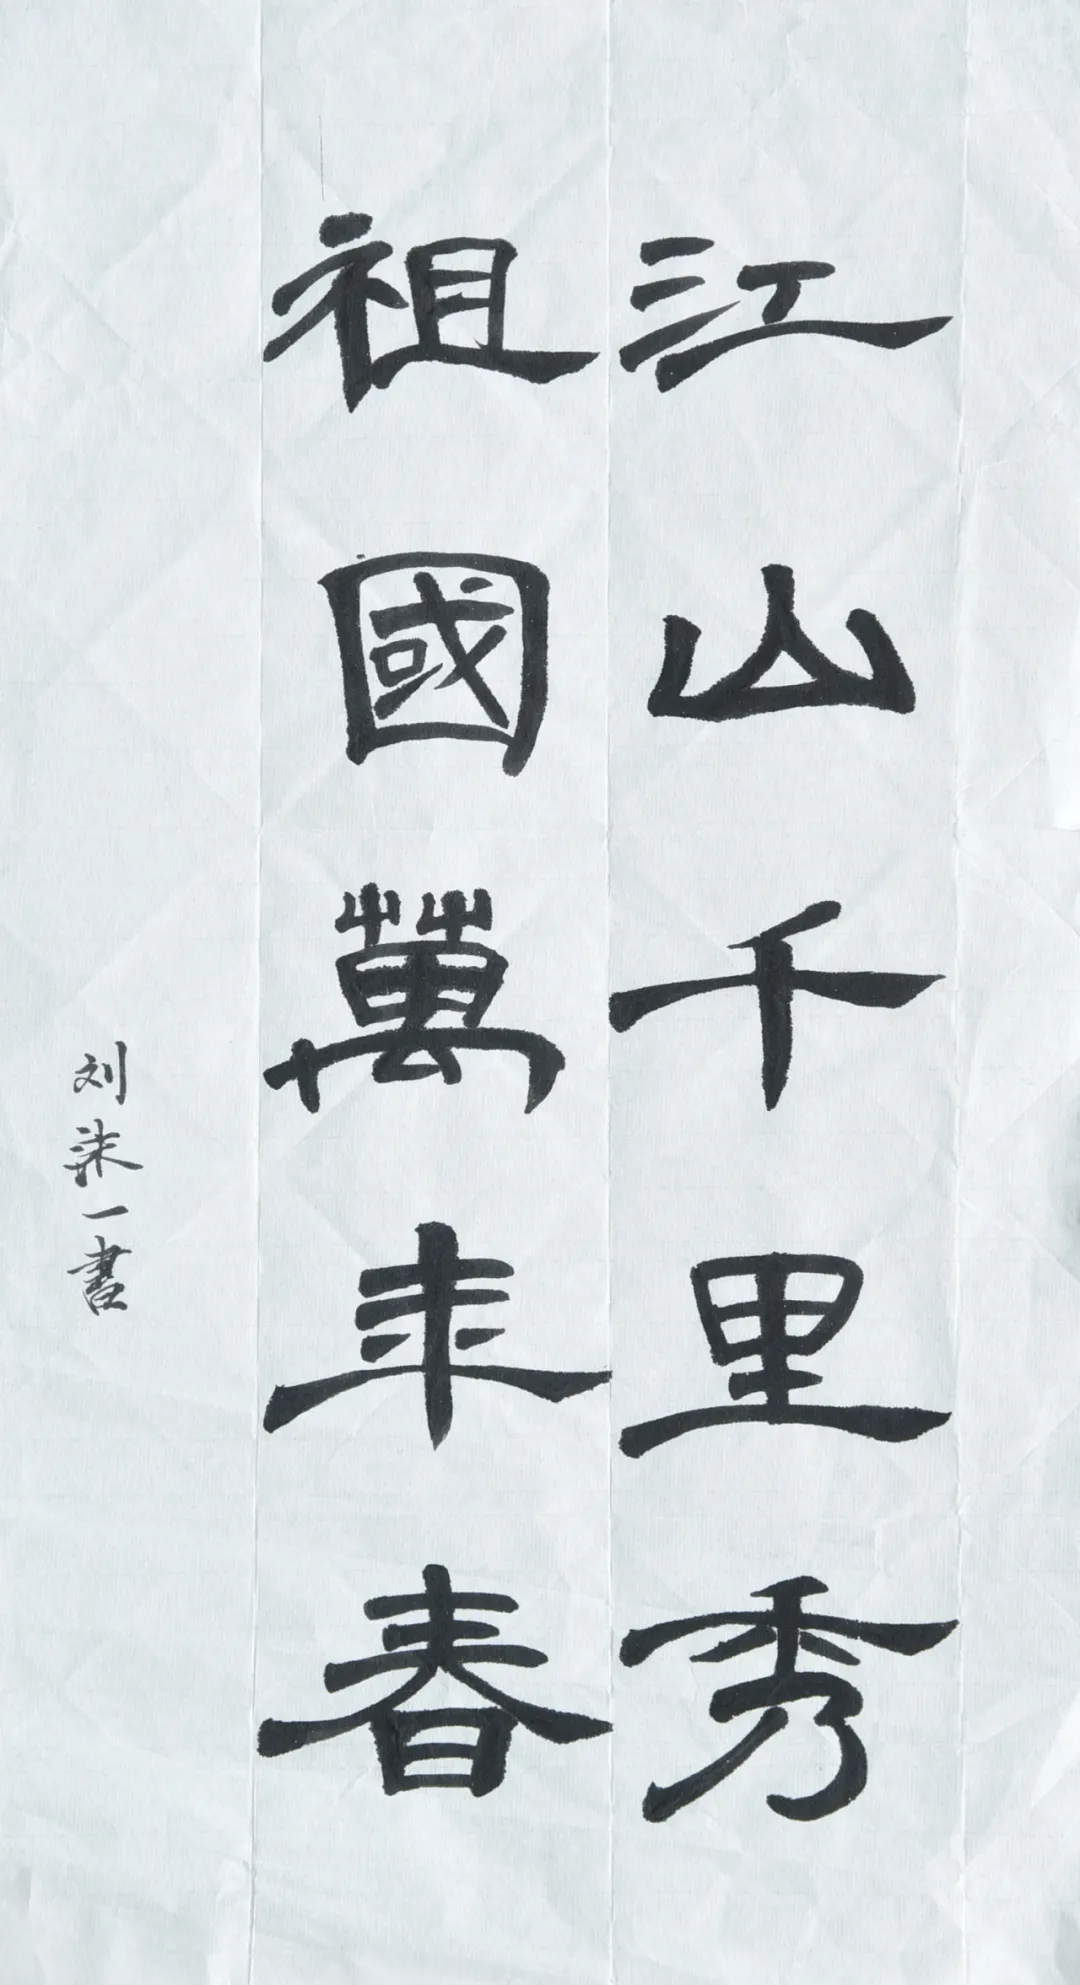 江山千里秀
祖國萬年春
刘洣一書